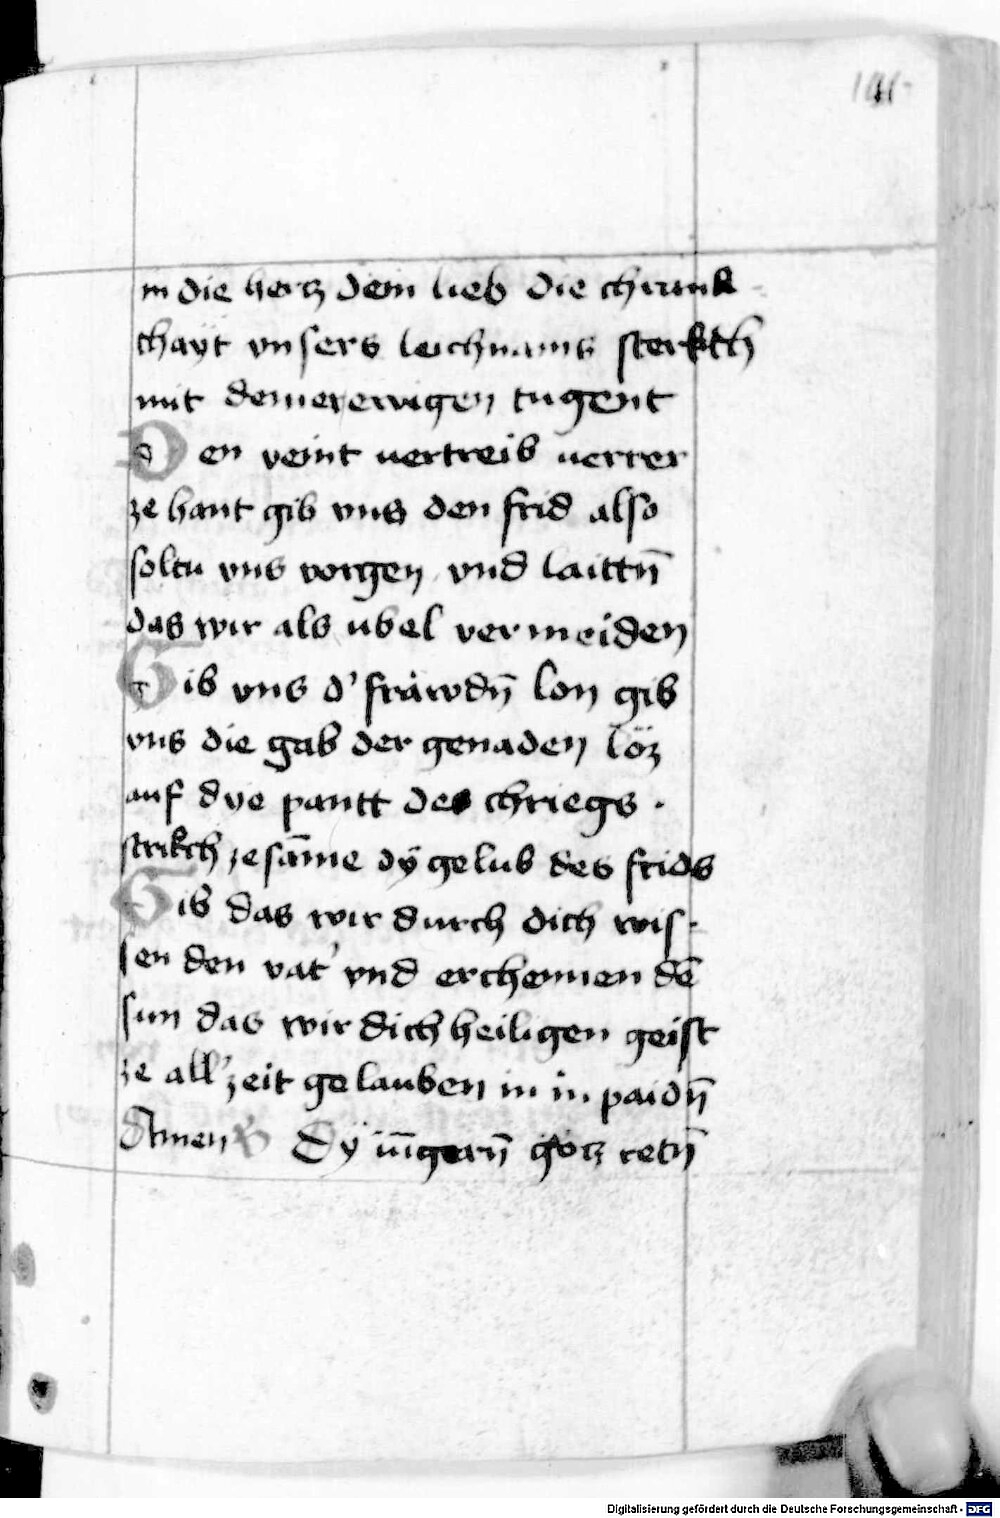 141
in die hertz dein lieb die chrank
chayt vnsers leichnams sterkch
mit deiner ewigen tugent
Den veint vertreib verrer
ze hant gib vns den frid also
soltu vns vorgen vnd laittn̄
das wir als vbel vermeiden
Gib vns d' fräwdn̄ lon gib
vns die gab der genaden löz
auf dye pantt des chriegs .
strikch zesām̄e dÿ gelub des frids
Gib das wir durch dich wis-
sen den vat' vnd erchennen dē
sun das wir dich heiligen geist
ze all'zeit gelauben in in paidn̄
Amen Dÿ iūgern̄ gotz retn̄
Digitalisierung gefördert durch die Deutsche Forschungsgemeinschaft - DFG